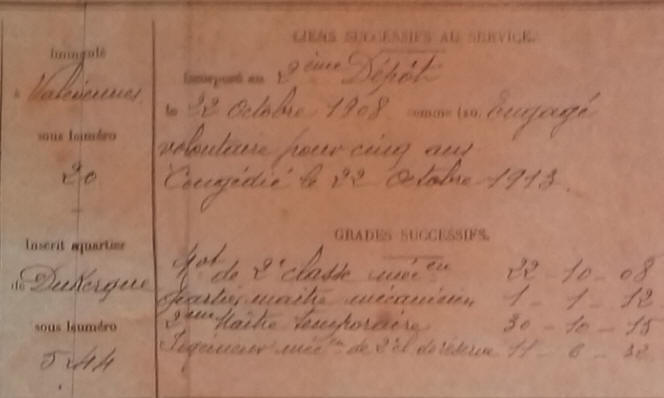 Immatriculé
à Valenciennes
sous numéro
20
Inscrit quartier
de Dunkerque
sous numéro
5244
LIENS SUCCESSIFS AU SERVICE.
Incorporé au 2ème Dépôt
le 22 Octobre 1908 comme (20) Engagé
volontaire pour cinq ans
Congédié le 22 Octobre 1913.
GRADES SUCCESSIFS.
Mot de 2e classe mécen 22 - 10 - 08
quartier maître mécanicien 1 - 1 - 12
2ème Maître temporaire 30 - 10 - 15
Ingénieur mécen de 2e cl de réserve 11 - 6 - 32